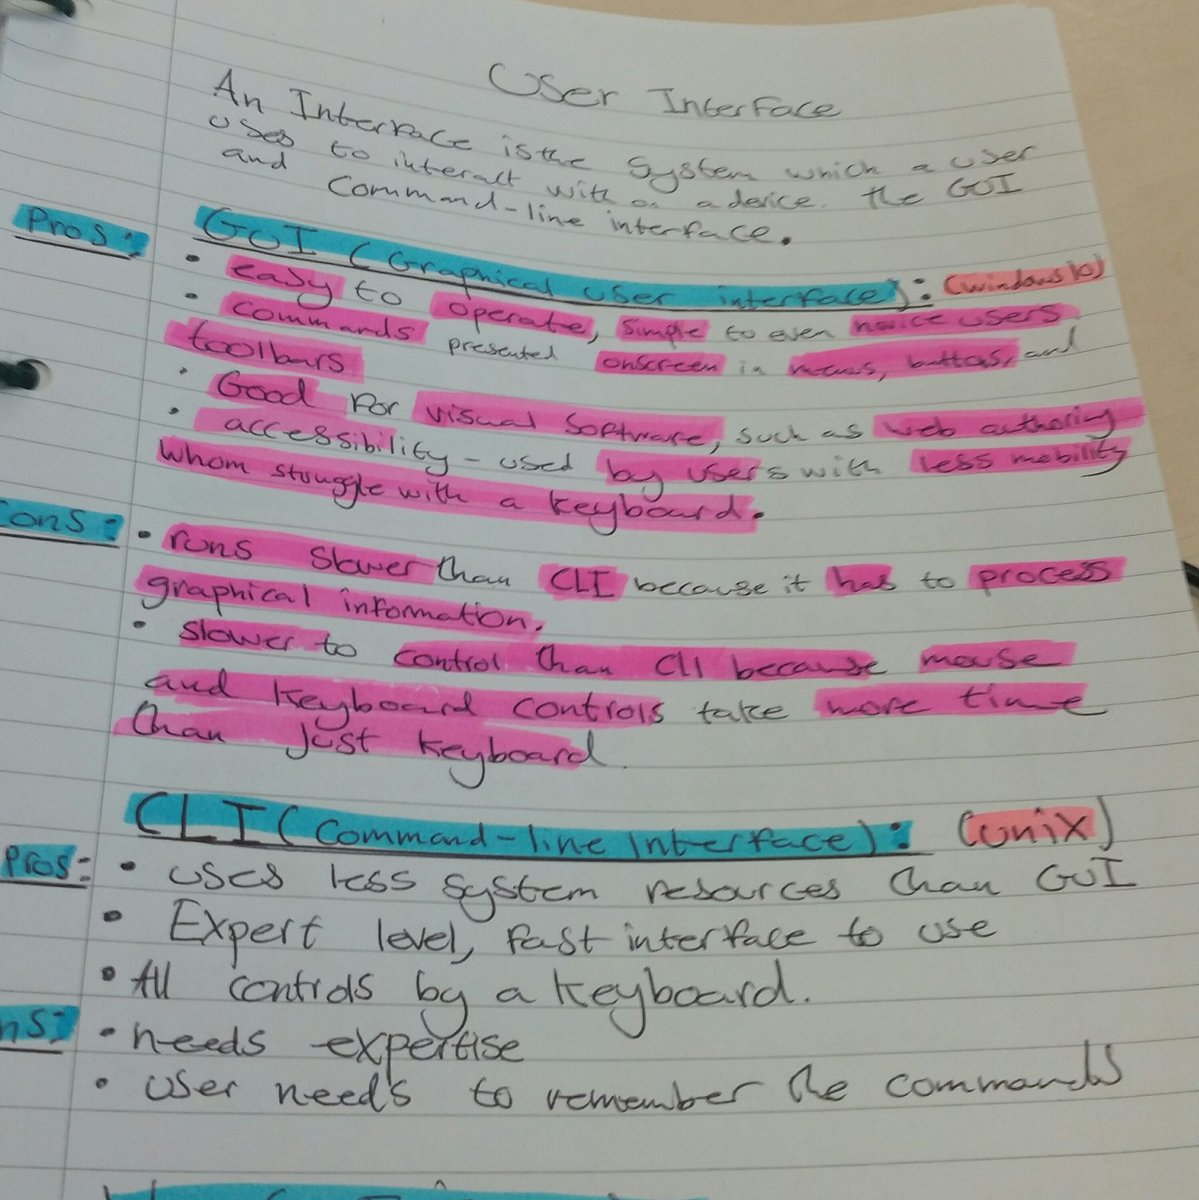 User Interface
An Interface is the system which a user
uses to interact with on a device. the GUI
and Command-line interface.
Pros: GUI (Graphical user interface): (windows 10)
• easy to operate, simple to even novice users
• commands presented onscreen in menus, buttons, and
toolbars
• Good for visual software, such as web authoring
• accessibility - used by users with less mobility
whom struggle with a keyboard.
cons: • runs slower than CLI because it has to process
graphical information.
• slower to control than CLI because mouse
and keyboard controls take more time
than just keyboard.
CLI (Command-line Interface): (unix)
Pros: • uses less system resources than GUI
• Expert level, fast interface to use
• All controls by a keyboard.
ns: • needs expertise
• user needs to remember the commands